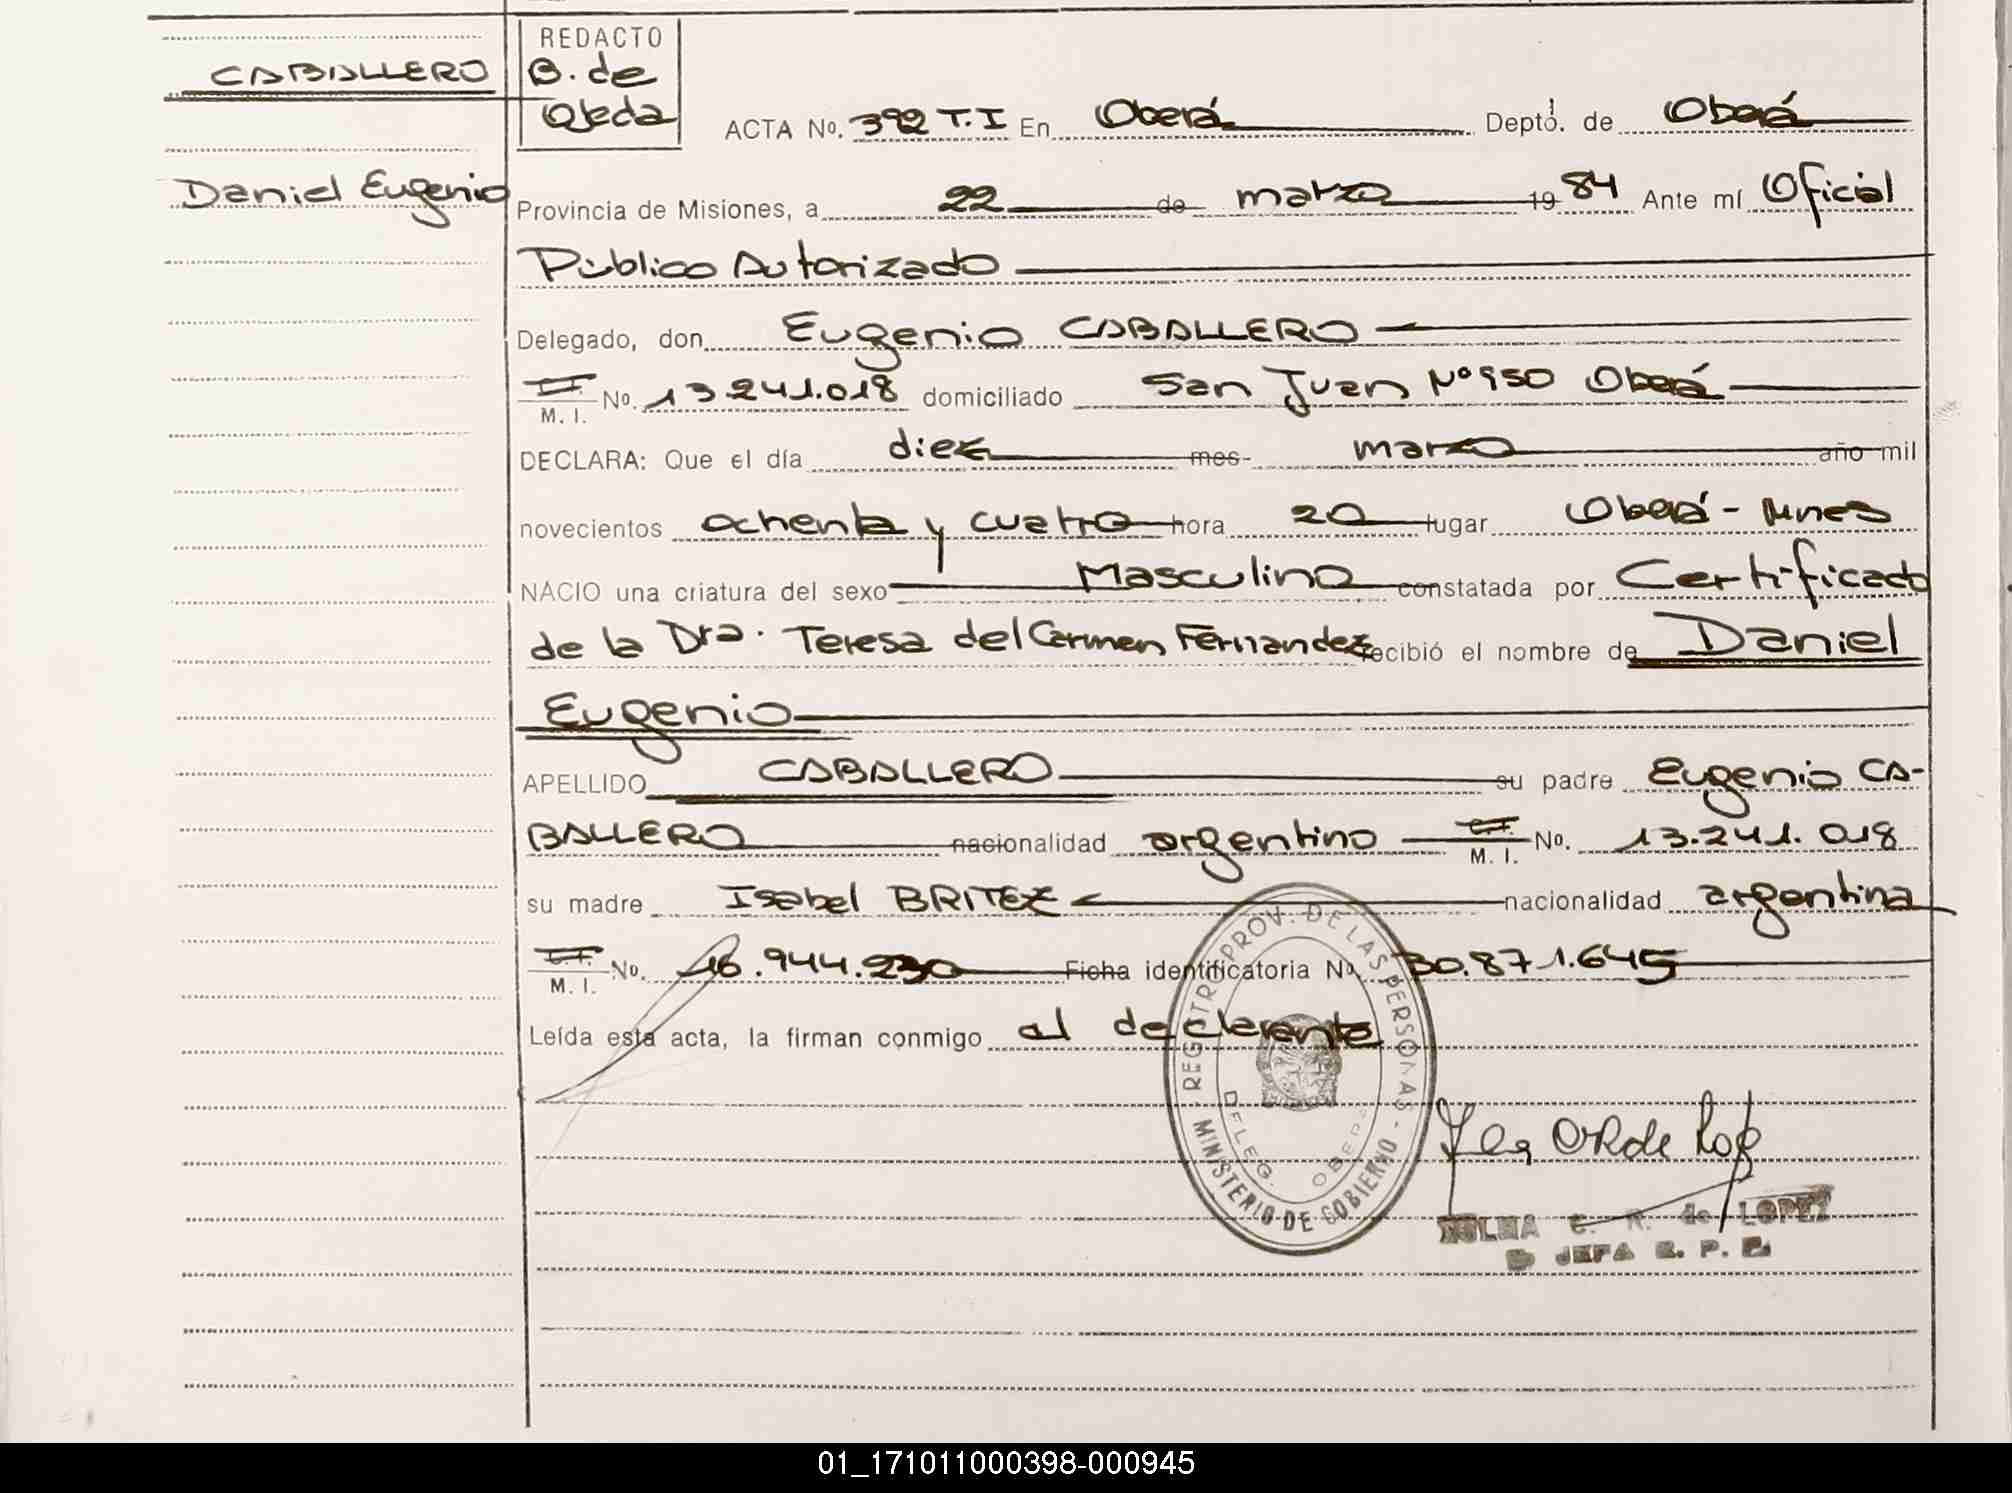 CABALLERO
Daniel Eugenio
REDACTO
B. de
Ojeda
ACTA No. 392 T.I En Oberá Deptó. de Oberá
Provincia de Misiones, a 22 de marzo 1984 Ante mí Oficial
Público Autorizado
Delegado, don Eugenio CABALLERO
C.I. M. I. No. 13.241.018 domiciliado San Juan Nº 950 Oberá
DECLARA: Que el día diez mes marzo año mil
novecientos ochenta y cuatro hora 20 lugar Oberá - Mnes
NACIO una criatura del sexo Masculino constatada por Certificado
de la Dra. Teresa del Carmen Fernandez recibió el nombre de Daniel
Eugenio
APELLIDO CABALLERO su padre Eugenio CA-
BALLERO nacionalidad argentino C.I. M. I. No. 13.241.018
su madre Isabel BRITEZ nacionalidad argentina
C.I. M. I. No. 16.944.230 Ficha identificatoria No. 30.871.645
Leída esta acta, la firman conmigo el declarante
REGISTRO PROV. DE LAS PERSONAS - MINISTERIO DE GOBIERNO -
DELEG. OBERA
de LOPEZ
JEFA
01_171011000398-000945